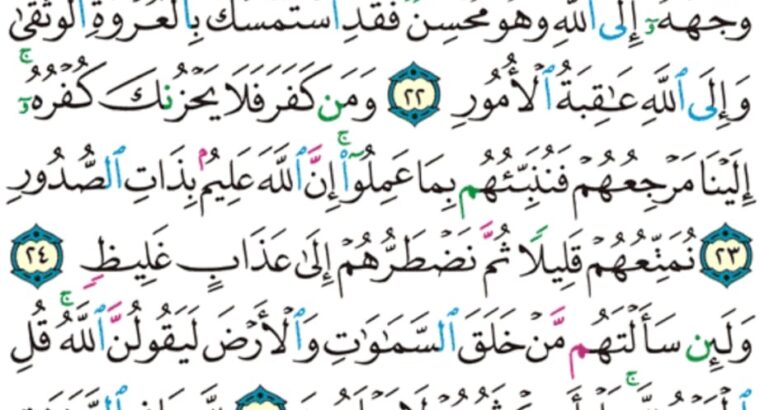 وَجْهَهُۥٓ إِلَى ٱللَّهِ وَهُوَ مُحْسِنٌ فَقَدِ ٱسْتَمْسَكَ بِٱلْعُرْوَةِ ٱلْوُثْقَىٰ
وَإِلَى ٱللَّهِ عَٰقِبَةُ ٱلْأُمُورِ ٢٢ وَمَن كَفَرَ فَلَا يَحْزُنكَ كُفْرُهُۥٓ ۚ
إِلَيْنَا مَرْجِعُهُمْ فَنُنَبِّئُهُم بِمَا عَمِلُوٓا۟ ۚ إِنَّ ٱللَّهَ عَلِيمٌۢ بِذَاتِ ٱلصُّدُورِ
٢٣ نُمَتِّعُهُمْ قَلِيلًا ثُمَّ نَضْطَرُّهُمْ إِلَىٰ عَذَابٍ غَلِيظٍ ٢٤
وَلَئِن سَأَلْتَهُم مَّنْ خَلَقَ ٱلسَّمَٰوَٰتِ وَٱلْأَرْضَ لَيَقُولُنَّ ٱللَّهُ ۚ قُلِ